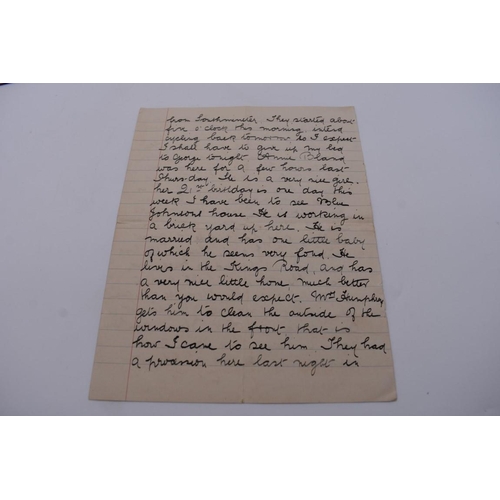 from Southminster. They started about
five o'clock this morning intend
cycling back tomorrow so I expect
I shall have to give up my bed
to George tonight. Annie Bland
was here for a few hours last
Thursday. He is a very nice
her 2 birthday is one day this
week I have been to see
Johnsons house He is working in
a brick yard up here. He is
married and has one little baby
of which he seems very fond. He
lives in the Kings Road, and has
a very nice little home much better
than you would expect. Mrs Humphrey
gets him to clean the outside of the
windows in the front that is
how I came to see him. They had
a procession here last night in